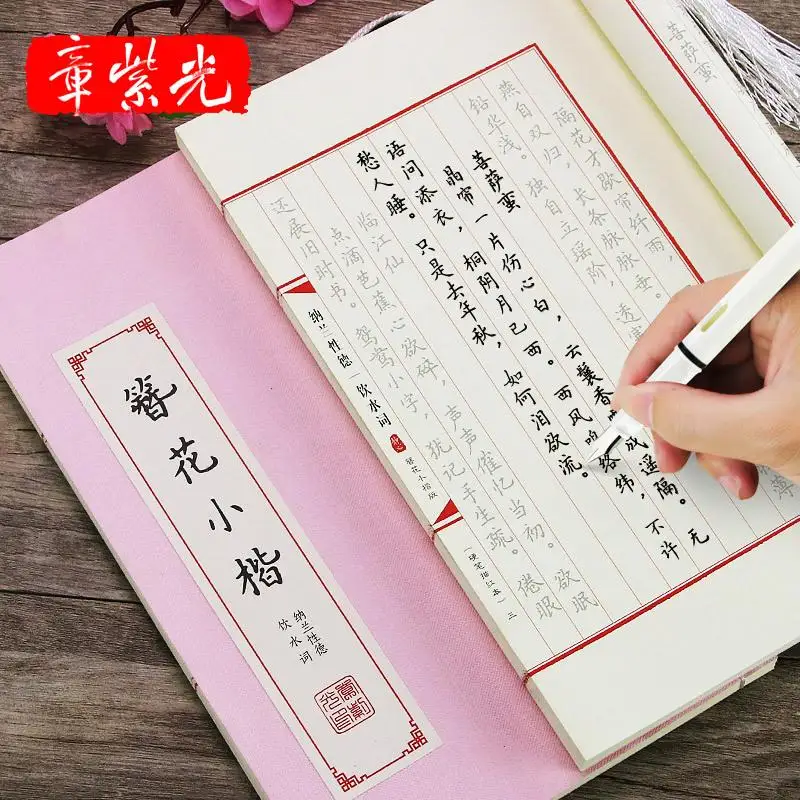 章紫光
菩萨蛮
隔花才歇帘纤雨，
燕自双归，长条脉脉垂。薄
铅华浅。独自立瑶阶，透寒
菩萨蛮
晶帘一片伤心白，云鬟香成遥隔。无
语问添衣，桐阴月已西。西风络纬，不许
愁人睡。只是去年秋，如何泪欲流。
临江仙
点滴芭蕉心欲碎，声声催忆当初。欲眠
还展旧时书。鸳鸯小字，犹记手生疏。倦眼
纳兰性德|饮水词 簪花小楷版 （硬笔描红本）三
簪花小楷
纳兰性德
饮水词